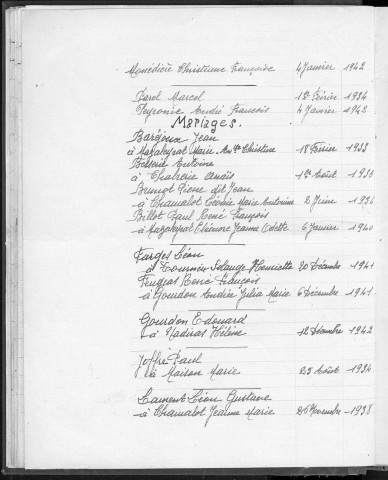 Monédière Christiane Françoise 4 Janvier 1942
Borel Marcel 12 Février 1934
Peyronie André François 4 Janvier 1942
Mariages.
Bargoux Jean
à Mazaleyrat Marie Christine 18 Février 1933
Besserie Antoine
à Chalerie 1936
Brunot Pierre dit Jean
à Chamalot Léonie Marie Antonine 2 Juin 1936
Billot Paul René François
à Mazaleyrat Eléonore Jeanne Odette 6 Janvier 1940
Farges Léon
à Tournier Solange Henriette 20 Décembre 1941
Feugeas René François
à Gourdon Andrée Julia Marie 6 Décembre 1941
Gourdon Edouard
à Madiras Hélène 12 Décembre 1942
Joffre Paul
à Maison Marie 25 Août 1934
Lament Léon Gustave
à Chamalot Jeanne Marie 1938